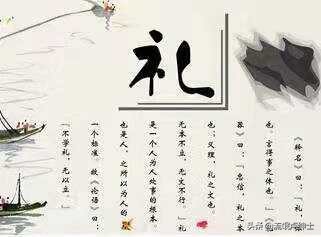 礼
《释名》曰：“礼
也。言得事之体也。”《礼
器》曰：“忠信，礼之本
也；义理，礼之文也。
无本不立，无文不行。”礼
是一个人为人处事的根本。
也是人，之所以为人的
一个标准。故《论语》曰：
“不学礼，无以立。”
头条